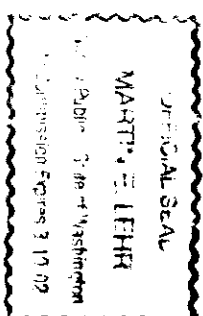 OFFICIAL SEAL
MARTIN E. LEHR
Public State of Washington
Commission Expires 3 19 02